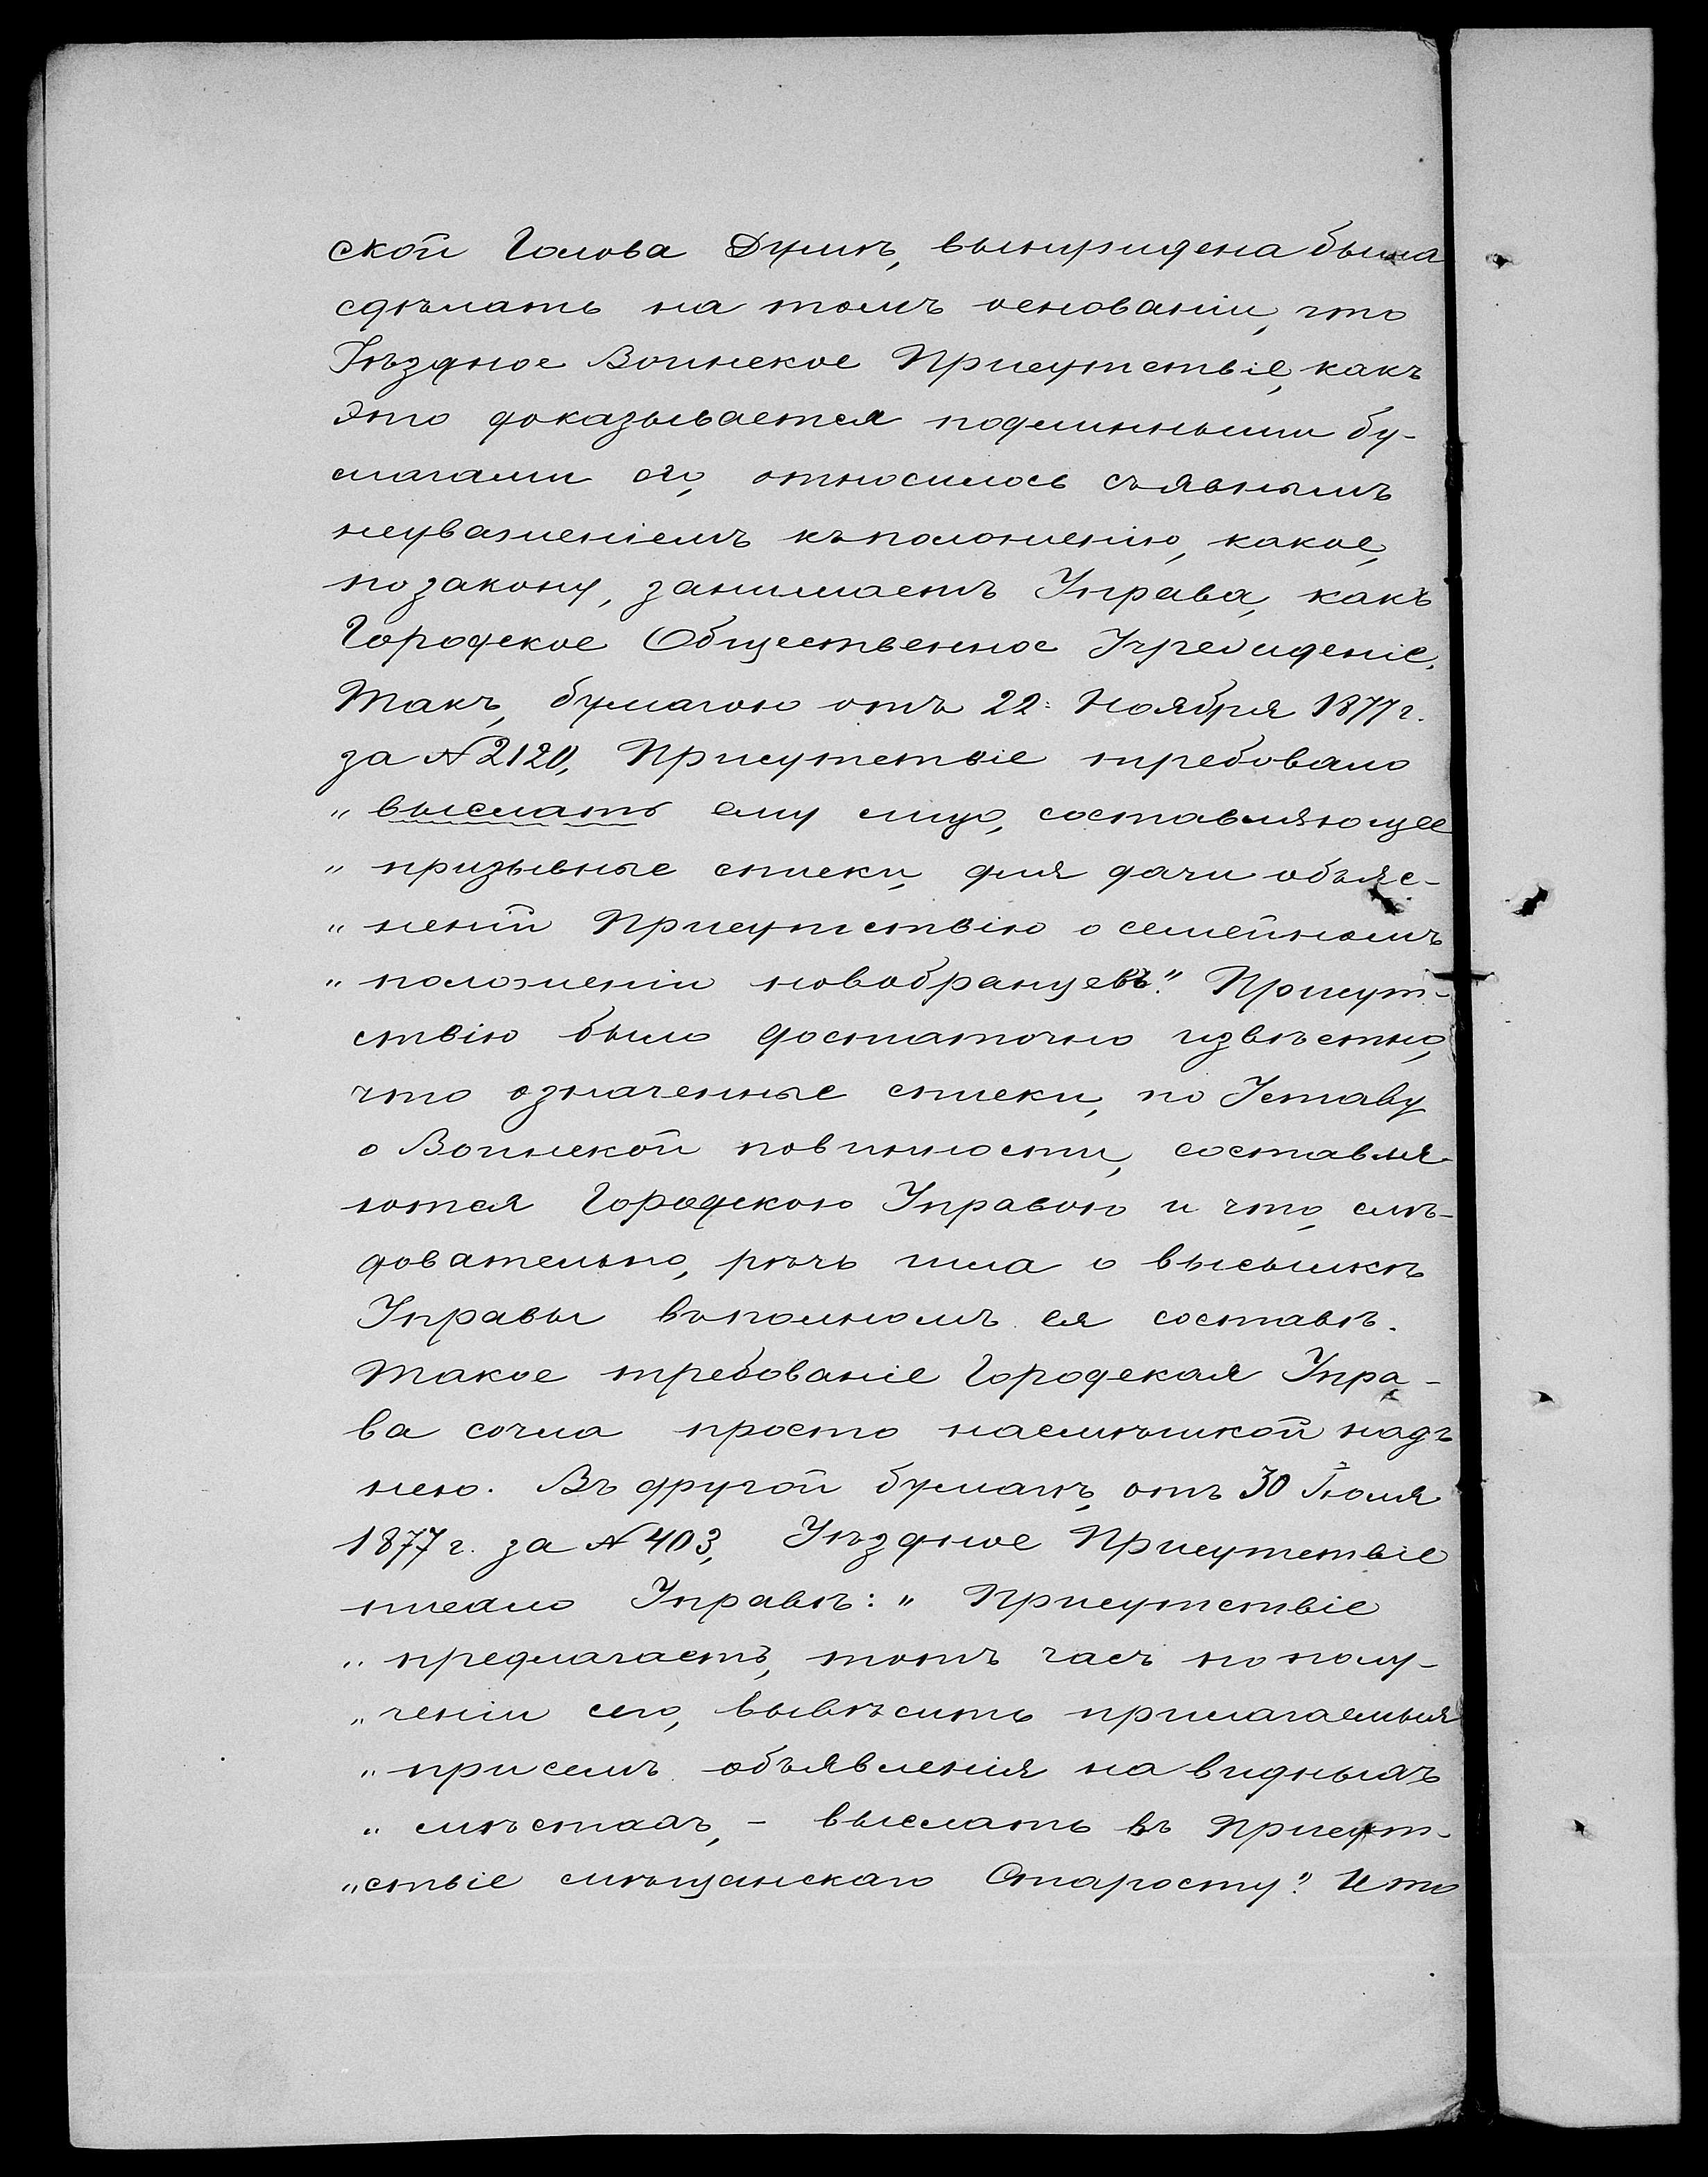 ской Голова Думѣ, вынуждена была
сдѣлать на томъ основаніи, что
Уѣздное Воинское Присутствіе, какъ
это доказывается подлинными бу-
магами его, относилось съ явнымъ
неуваженіемъ къ положенію, какое,
по закону, занимаетъ Управа, какъ
Городское Общественное Учрежденіе.
Такъ, бумагою отъ 22: Ноября 1877 г.
за № 2120, Присутствіе требовало
„ выслать ему лицо, составляющее
„ призывные списки, для дачи объяс-
„ неній Присутствію о семейномъ
„ положеніи новобранцевъ." Присут-
ствію было достаточно извѣстно,
что означенные списки, по Уставу
о Воинской повинности, составля-
ются Городскою Управою и что, слѣ-
довательно, рѣчь шла о высылкѣ
Управы въ полномъ ея составѣ.
Такое требованіе Городская Упра-
ва сочла просто насмѣшкой надъ
нею. Въ другой бумагѣ, отъ 30 Іюля
1877 г. за № 403, Уѣздное Присутствіе
писало Управѣ: „ Присутствіе
„ предлагаетъ, тотъ часъ по полу-
„ ченіи сего, вывѣсить прилагаемыя
„ при семъ объявленія на видныхъ
„ мѣстахъ, - выслать въ Присут-
„ ствіе мѣщанскаго Старосту." И то